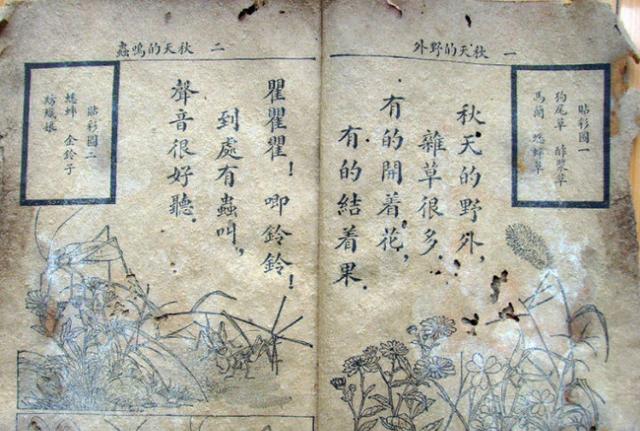 一 秋天的野外
貼彩圖一
狗尾草 酢漿草
馬蘭 蟋蟀草
秋天的野外，
雜草很多．
有的開着花，
有的結着果．
二 秋天的鳴蟲
瞿瞿瞿！唧鈴鈴！
到處有蟲叫，
聲音很好聽．
貼彩圖二
蟋蟀 金鈴子
紡織娘